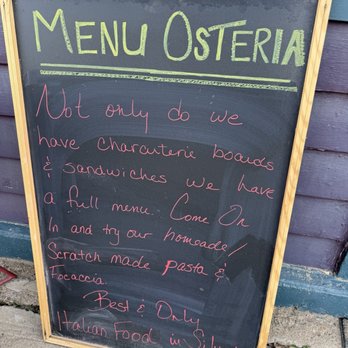 MENU OSTERIA
Not only do we
have charcuterie boards
& sandwiches we have
a full menu. Come On
In and try our homeade/
Scratch made pasta &
Focaccia.
Best & Only
Italian Food in